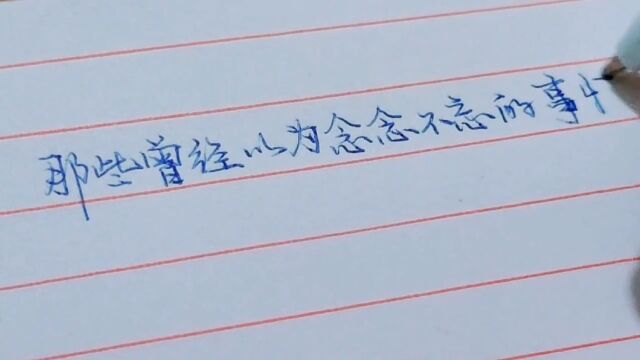 那些曾经以为念念不忘的事